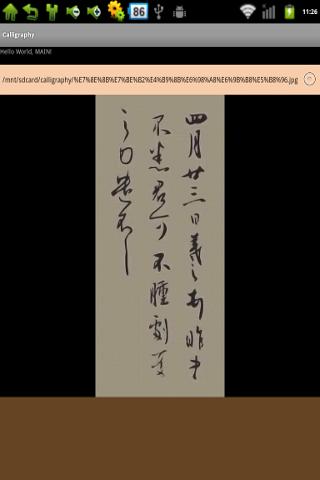 86
11:26
Calligraphy
Hello World, MAIN!
/mnt/sdcard/calligraphy/%E7%8E%8B%E7%BE%B2%E4%B9%8B%E6%98%A8%E6%9B%B8%E5%B8%96.jpg
四月廿三日羲之頓昨書
不悉君可不腫劇憂
之力遣不一